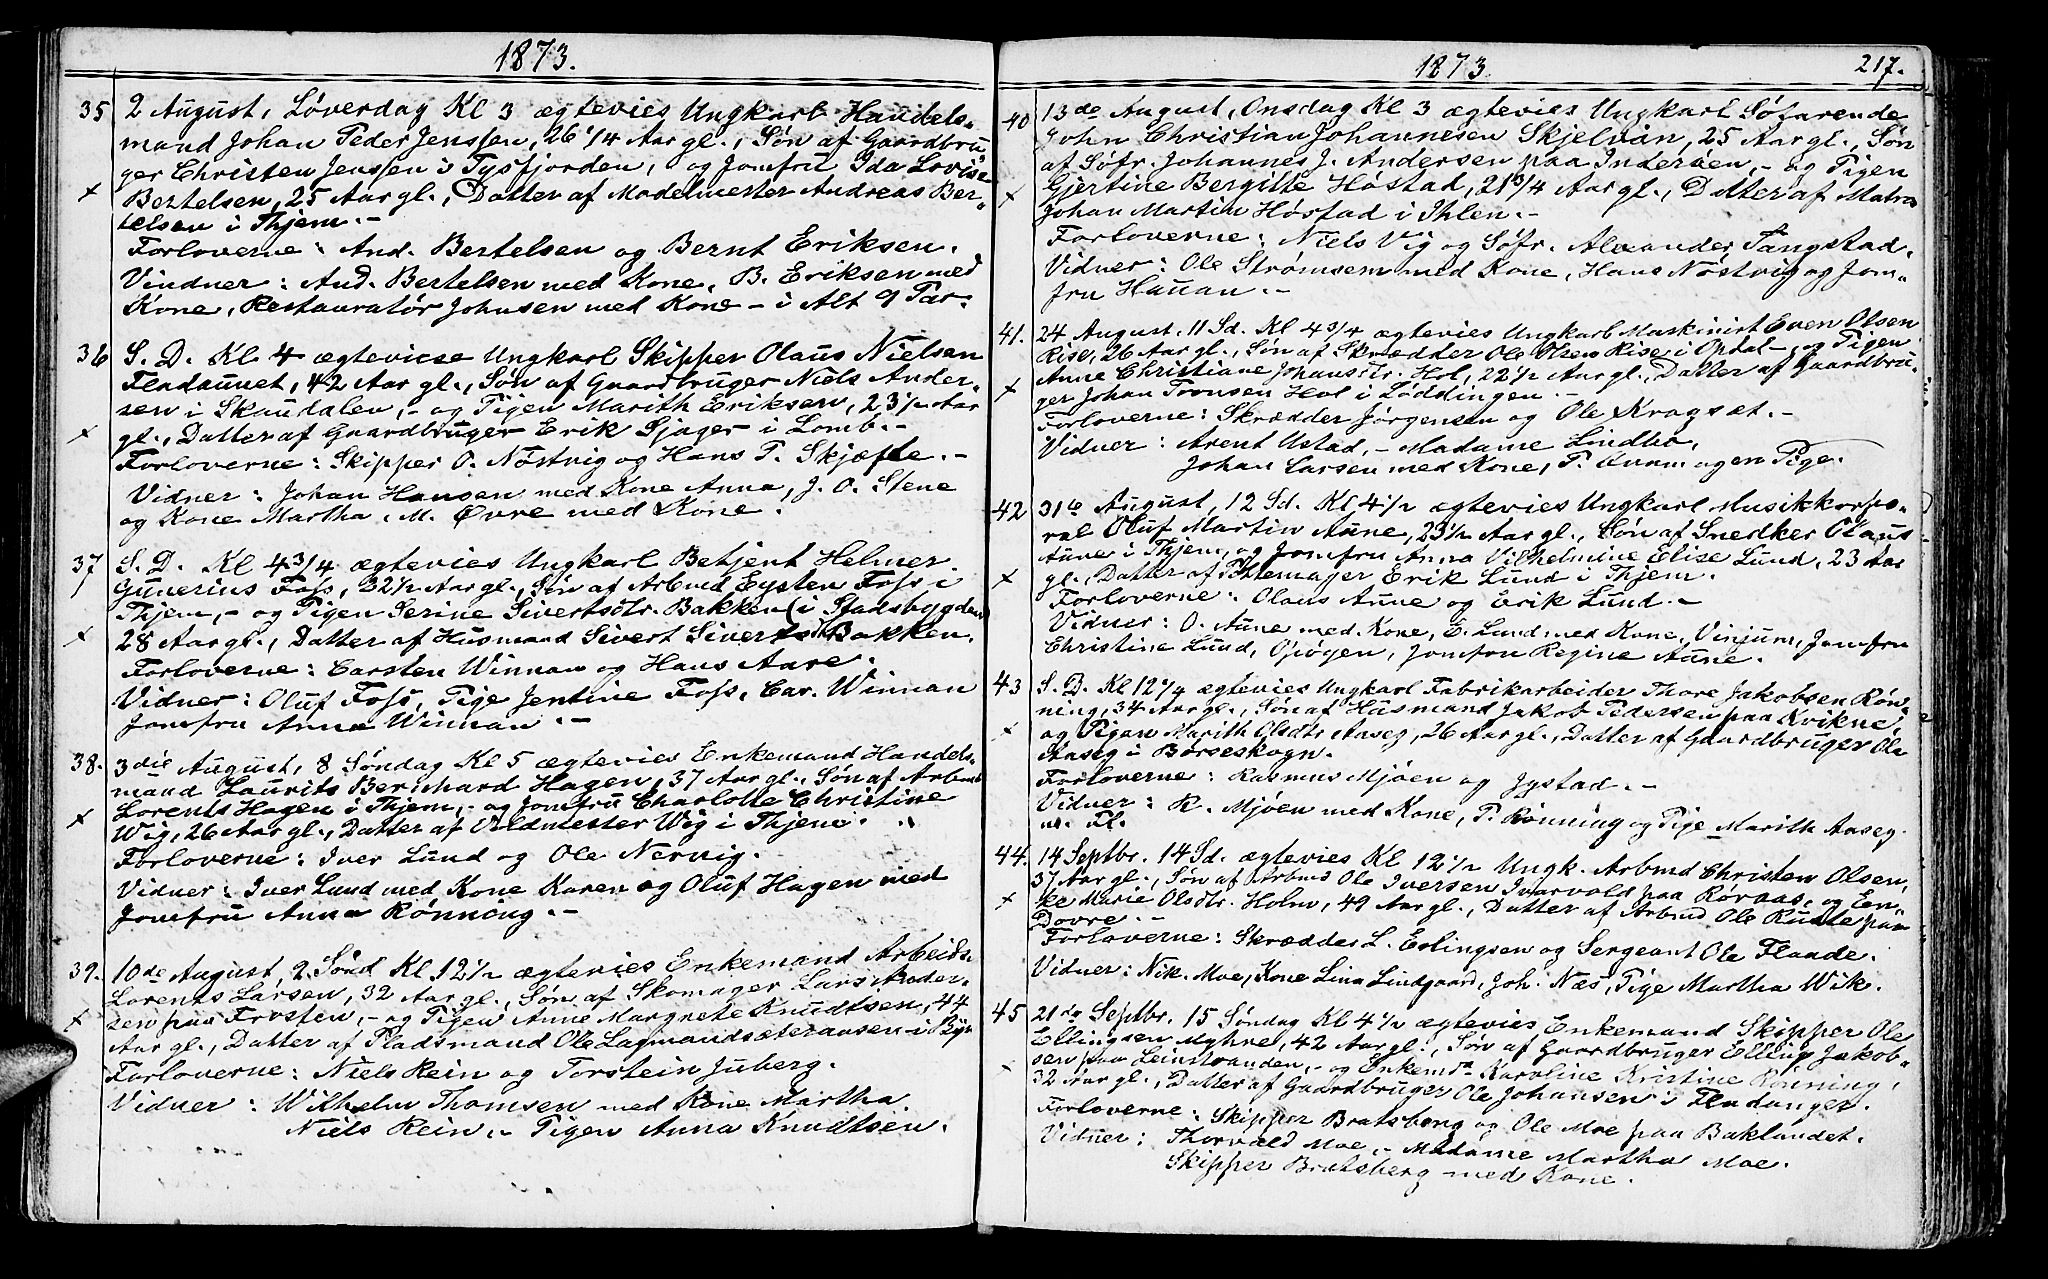 1873.
35 2 August, Løverdag Kl 3 ægtevies Ungkarl Handels-
mand Johan Peder Jenssen, 26 1/4 Aar gl., Søn af Gaardbru
ger Christen Jenssen i Tysfjorden, og Jomfru Ida Lovise
× Bertelsen, 25 Aar gl., Datter af Modelmester Andreas Ber-
telsen i Thjem. -
Forloverne: And. Bertelsen og Bernt Eriksen.
Vindner: And. Bertelsen med Kone, B. Eriksen med
Kone, Restauratør Johnsen med Kone - i Alt 9 Par.
36 S. D. Kl 4 ægteviese Ungkarl Skipper Olaus Nielsen
Fladaunet, 42 Aar gl., Søn af Gaardbruger Niels Ander-
sen i Skaudalen, - og Pigen Marith Eriksen, 23 1/2 Aar
× gl., Datter af Gaardbruger Erik Sjager i Lomb. -
Forloverne: Skipper O. Nøstvig og Hans P. Skjæfte. -
Vidner: Johan Hansen med Kone Anna, J. O. Stene
og Kone Martha. M. Øvre med Kone.
37 S. D. Kl 4 3/4 ægtevies Ungkarl Betjent Helmer
Gunerius Foss, 32 1/2 Aar gl., Søn af Arbmd Eysten Foss i
Thjem, - og Pigen Serine Sivertsdtr. Bakken (i Stadsbygden)
× 28 Aar gl., Datter af Husmand Sivert Siverts Bakken.
Forloverne: Carsten Winnan og Hans Aare.
Vidner: Oluf Foss, Pige Jentine Foss, Car. Winnan
Jomfru Anna Winnan. -
38. 3die August, 8 Søndag Kl 5 ægtevies Enkemand Handels-
mand Laurits Bernhard Hagen, 37 Aar gl., Søn af Arbmd
Lorents Hagen i Thjem, - og Jomfru Charlotte Christine
× Wig, 26 Aar gl., Datter af Veldmester Wig i Thjem.
Forloverne: Iver Lund og Ole Nervig.
Vidner: Iver Lund med Kone Karen og Oluf Hagen med
Jomfru Anna Rønning. -
39. 10de August, 9 Sønd Kl 12 1/2 ægtevies Enkemand Arbeids-
Lorents Larsen, 32 Aar gl., Søn af Skomager Lars Peder-
× sen paa Frosten, - og Pigen Anne Margrete Knudtsen, 44
Aar gl., Datter af Pladsmand Ole Lagmandsæteraasen i
Forloverne: Niels Rein og Torstein Juberg.
Vidner: Wilhelm Thomsen med Kone Martha.
Niels Rein. - Pigen Anna Knudtsen.
1873. 217.
40 13de August, Onsdag Kl 3 ægtevies Ungkarl Søfarende
John Christian Johannesen Skjelvan, 25 Aar gl., Søn
af Søfr. Johannes J. Andersen paa Inderøen, - og Pigen
× Gjertine Bergitte Høstad, 21 3/4 Aar gl., Datter af Matros
Johan Martin Høstad i Ihlen. -
Forloverne: Niels Vig og Søfr. Alexander Tangstad.
Vidner: Ole Strømsem med Kone, Hans Nøstvig og Jom-
fru Hauan. -
41. 24 August, 11 Sd. Kl 4 3/4 ægtevies Ungkarl Maskinist Even Olsen
Rise, 26 Aar gl., Søn af Skrædder Ole Olsen Rise i Opdal - og Pigen
× Anne Christiane Johansdtr. Hol, 22 1/2 Aar gl., Datter af Gaardbru-
ger Johan Tronsen Hol i Løddingen. -
Forloverne: Skrædder Jørgensen og Ole Kragsæt. -
Vidner: Arent Ustad, - Madame Lindbo,
Johan Larsen med Kone, P. Aunm og en Pige.
42 31te August, 12 Sd. Kl 4 1/2 ægtevies Ungkarl Musikkorpo-
ral Oluf Martin Aune, 23 1/2 Aar gl., Søn af Snedker Olaus
Aune i Thjem, og Jomfru Anna Vilhelmine Elise Lund, 23 Aar
× gl., Datter af Pottemager Erik Lund i Thjem.
Forloverne: Olaus Aune og Erik Lund. -
Vidner: O. Aune med Kone, E. Lund med Kone, Vinjum, Jomfru
Christine Lund, Gjøgen, Jomfru Regine Aune.
43 S. D. Kl 12 1/4 ægtevies Ungkarl Fabrikarbeider Thore Jakobsen Røn-
ning, 34 Aar gl., Søn af Husmand Jakob Pedersen paa Kvikne,
× og Pigen Marith Olsdtr Aaseg, 26 Aar gl., Datter af Gaardbruger Ole
Aaseg i Børseskogn.
Forloverne: Rasmus Mjøen og Jystad. -
Vidner: R. Mjøen med Kone, P. Rønning og Pige Marith Aaseg.
m. Fl.
44. 14 Septbr. 14 Sd. ægtevies Kl 12 1/2 Ungk. Arbmd Christen Olsen,
37 Aar gl., Søn af Arbmd Ole Iversen Ivarvold paa Røraas, og En-
× ke Marie Olsdtr. Holm, 49 Aar gl., Datter af Arbmd Ole Ruste paa
Dovre. -
Forloverne: Skrædder L. Evlingsen og Sergeant Ole Flaade.
Vidner: Nik. Moe, Kone Lina Lindgaard, Joh. Næs, Pige Martha Wik.
45 21de Septbr. 15 Søndag Kl 4 1/2 ægtevies Enkemand Skipper Ole
Ellingsen Myhre, 42 Aar gl., Søn af Gaardbruger Elling Jakob-
× sen paa Leinstranden, - og Enkema Karoline Kristine Rønning,
32 Aar gl., Datter af Gaardbruger Ole Johansen i Fladanger.
Forloverne: Skipper Bratsberg og Ole Moe paa Baklandet.
Vidner: Thorvald Moe, - Madame Martha Moe.
Skipper Bratsberg med Kone.